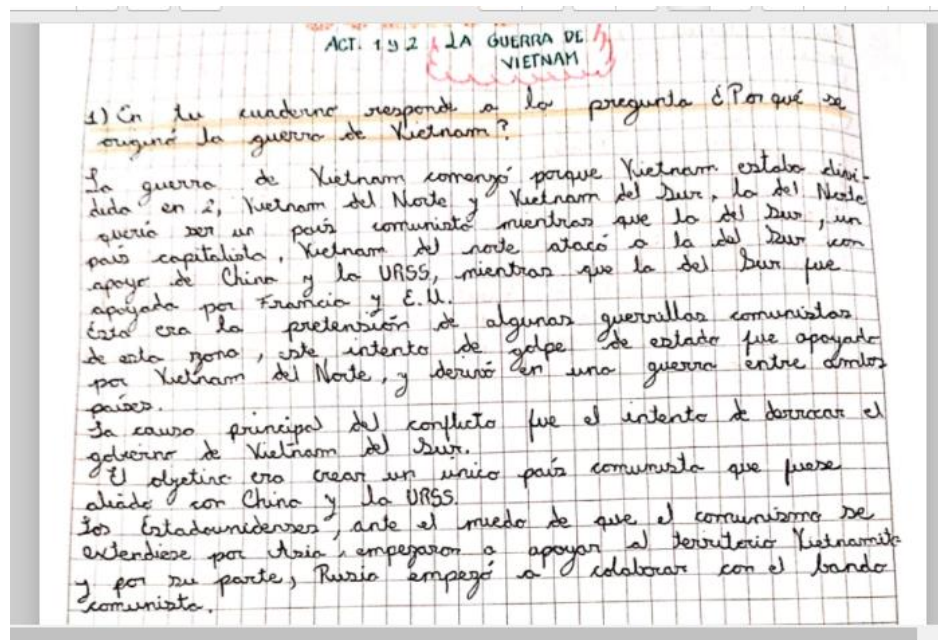 ACT. 1 y 2 LA GUERRA DE
VIETNAM
1) En tu cuaderno responde a la pregunta ¿Por qué se
originó la guerra de Vietnam?
La guerra de Vietnam comenzó porque Vietnam estaba divi-
dida en 2, Vietnam del Norte y Vietnam del Sur, la del Norte
quería ser un país comunista mientras que la del Sur, un
país capitalista, Vietnam del norte atacó a la del Sur con
apoyo de China y la URSS, mientras que la del Sur fue
apoyada por Francia y E.U.
Esta era la pretensión de algunas guerrillas comunistas
de esta zona, este intento de golpe de estado fue apoyado
por Vietnam del Norte, y derivó en una guerra entre ambos
países.
La causa principal del conflicto fue el intento de derrocar el
gobierno de Vietnam del Sur.
El objetivo era crear un único país comunista que fuese
aliado con China y la URSS.
Los Estadounidenses, ante el miedo de que el comunismo se
extendiese por Asia, empezaron a apoyar al territorio Vietnamita
y por su parte, Rusia empezó a colaborar con el bando
comunista.